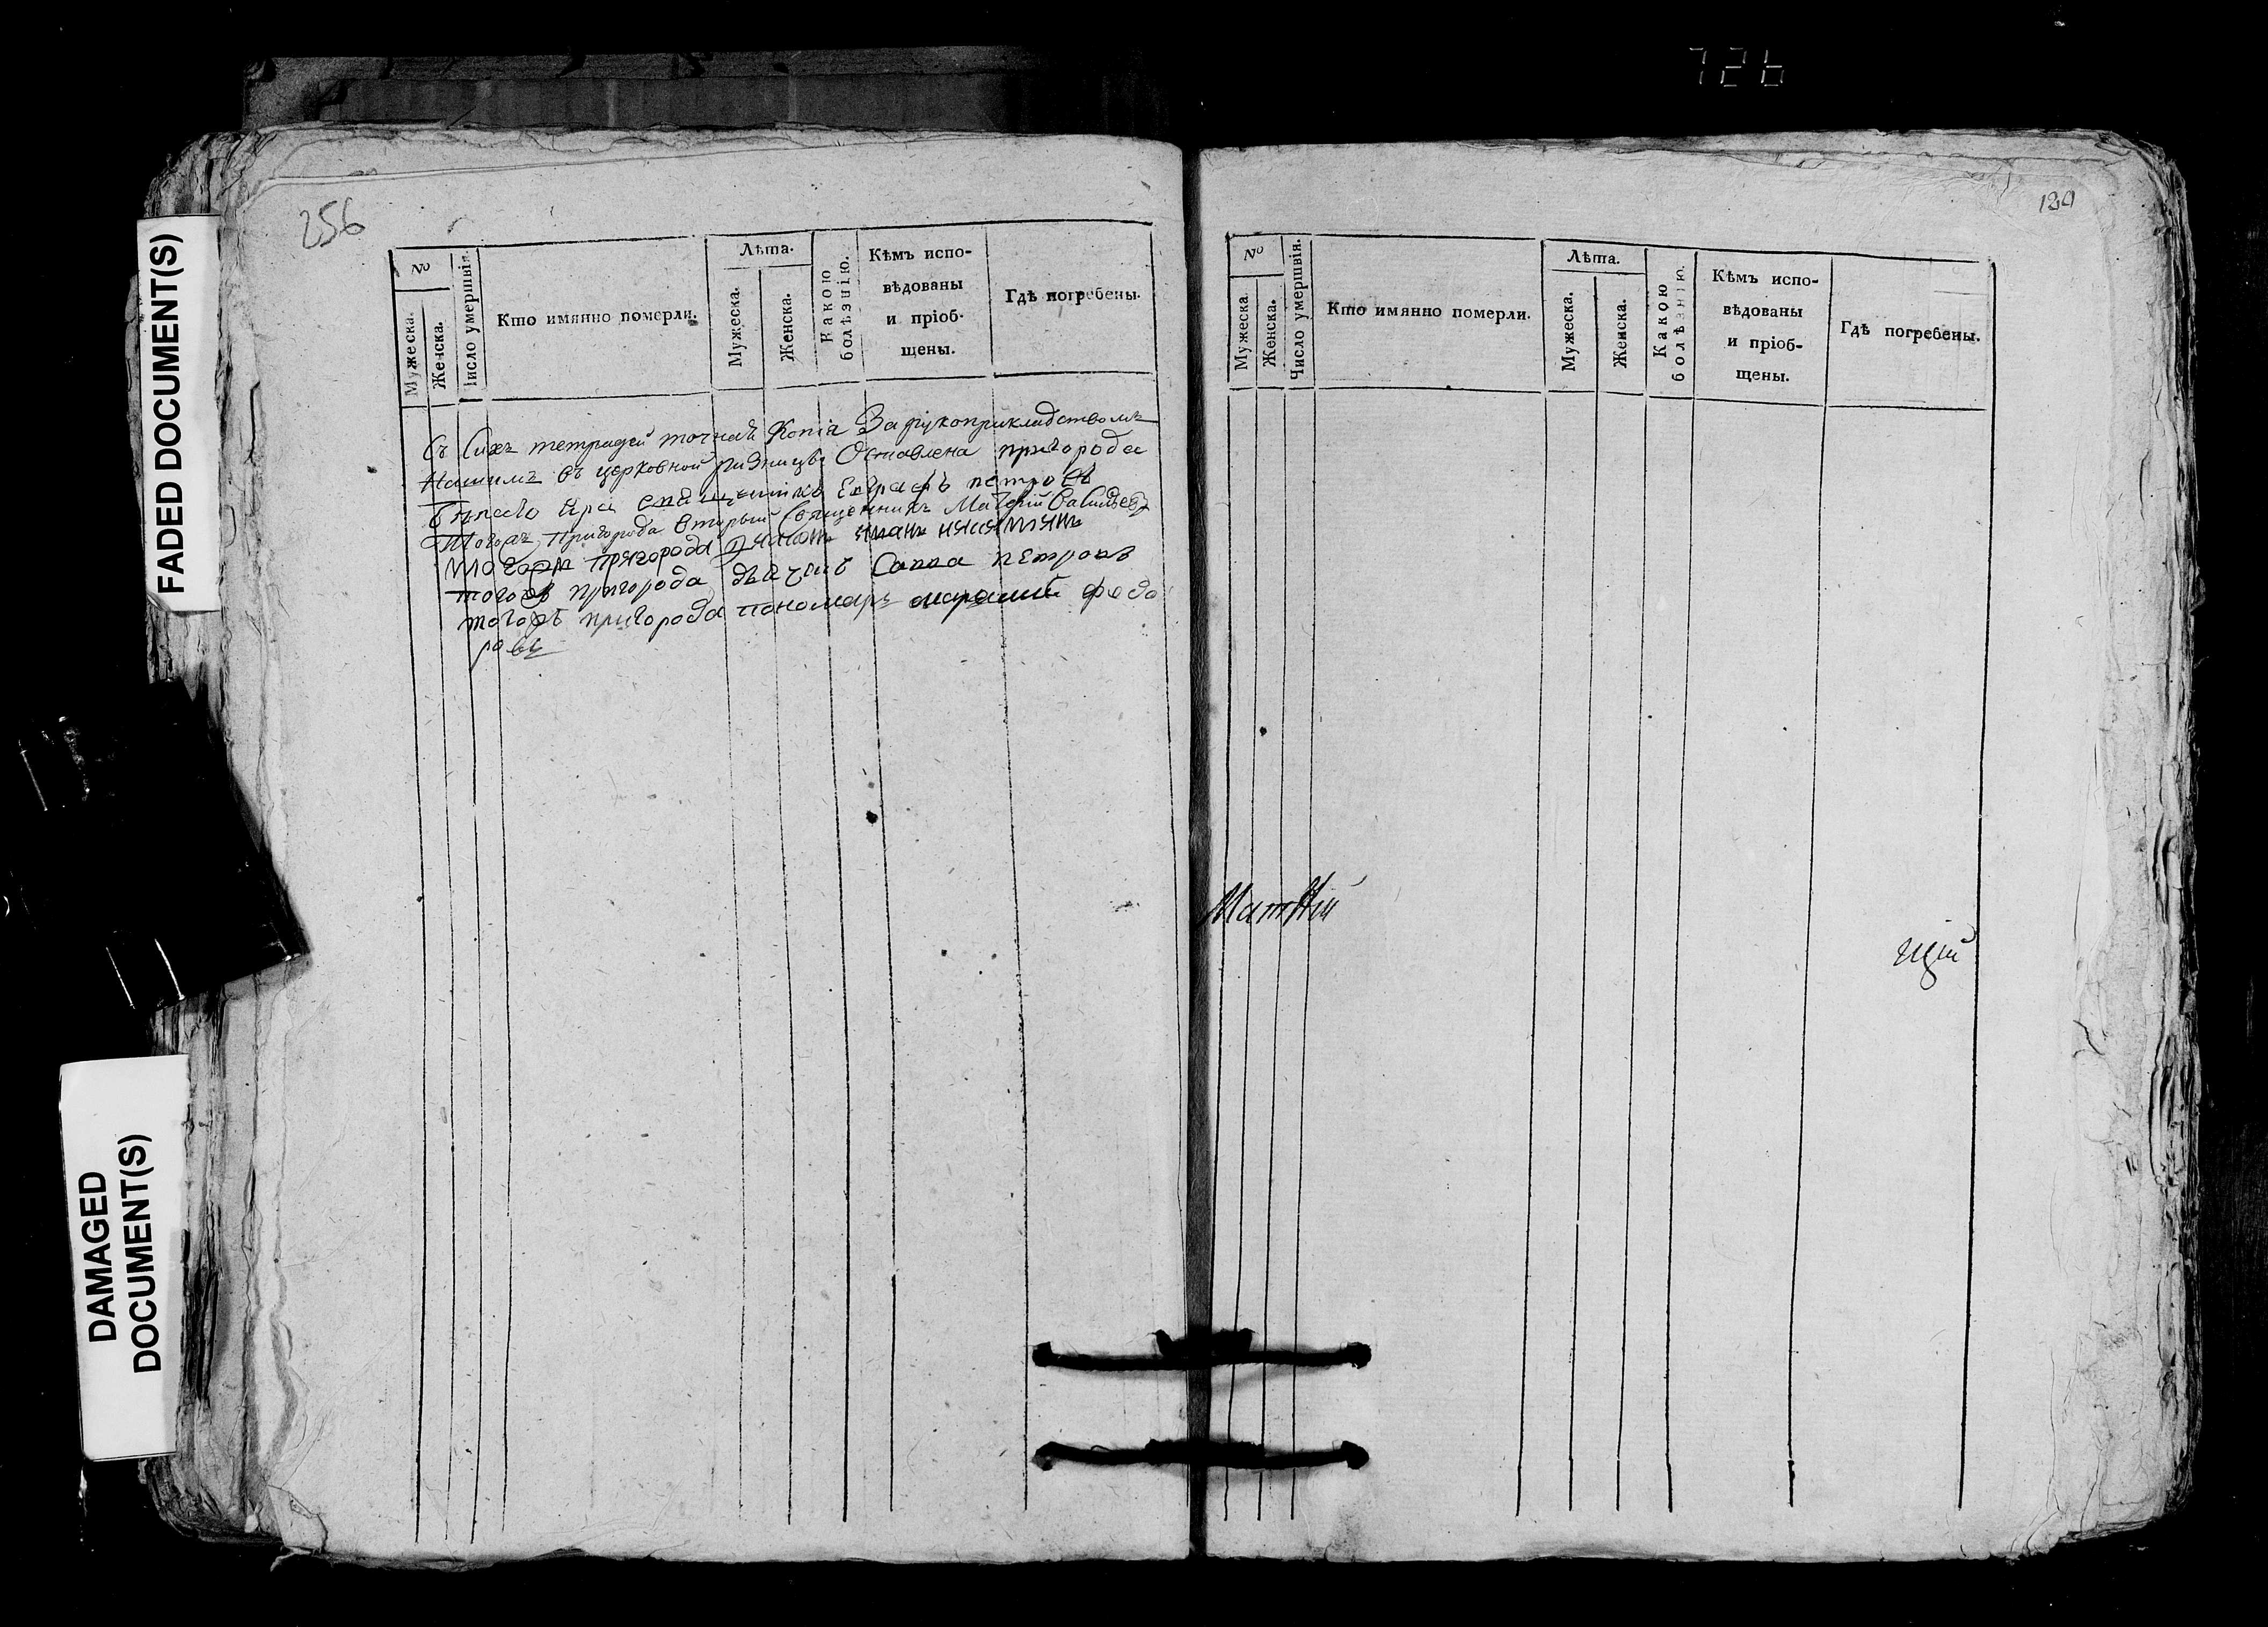 726
FADED DOCUMENT(S)
DAMAGED
DOCUMENT(S)
256
№
Мужеска.
Женска.
Число умершвія.
Кто имянно померли.
Лѣта.
Мужеска.
Женска.
Какою
болѣзнію.
Кѣмъ испо-
вѣдованы
и пріоб-
щены.
Гдѣ погребены.
Съ Сихъ тетрадей точная Копія За рукоприкладствомъ
Нашимъ въ церковной ризницѣ Оставлена пригорода
священникъ петровъ
Тогожъ Пригорода вторый Священникъ Матфій Васильевъ
тогожъ пригорода диаконъ иванъ никитинъ
тогожъ пригорода дьячекъ Савва петровъ
тогожъ пригорода пономарь федо
ровъ
120
№
Мужеска.
Женска.
Число умершвія.
Кто имянно померли.
Лѣта.
Мужеска.
Женска.
Какою
болѣзнію.
Кѣмъ испо-
вѣдованы
и пріоб-
щены.
Гдѣ погребены.
Матфій
щій